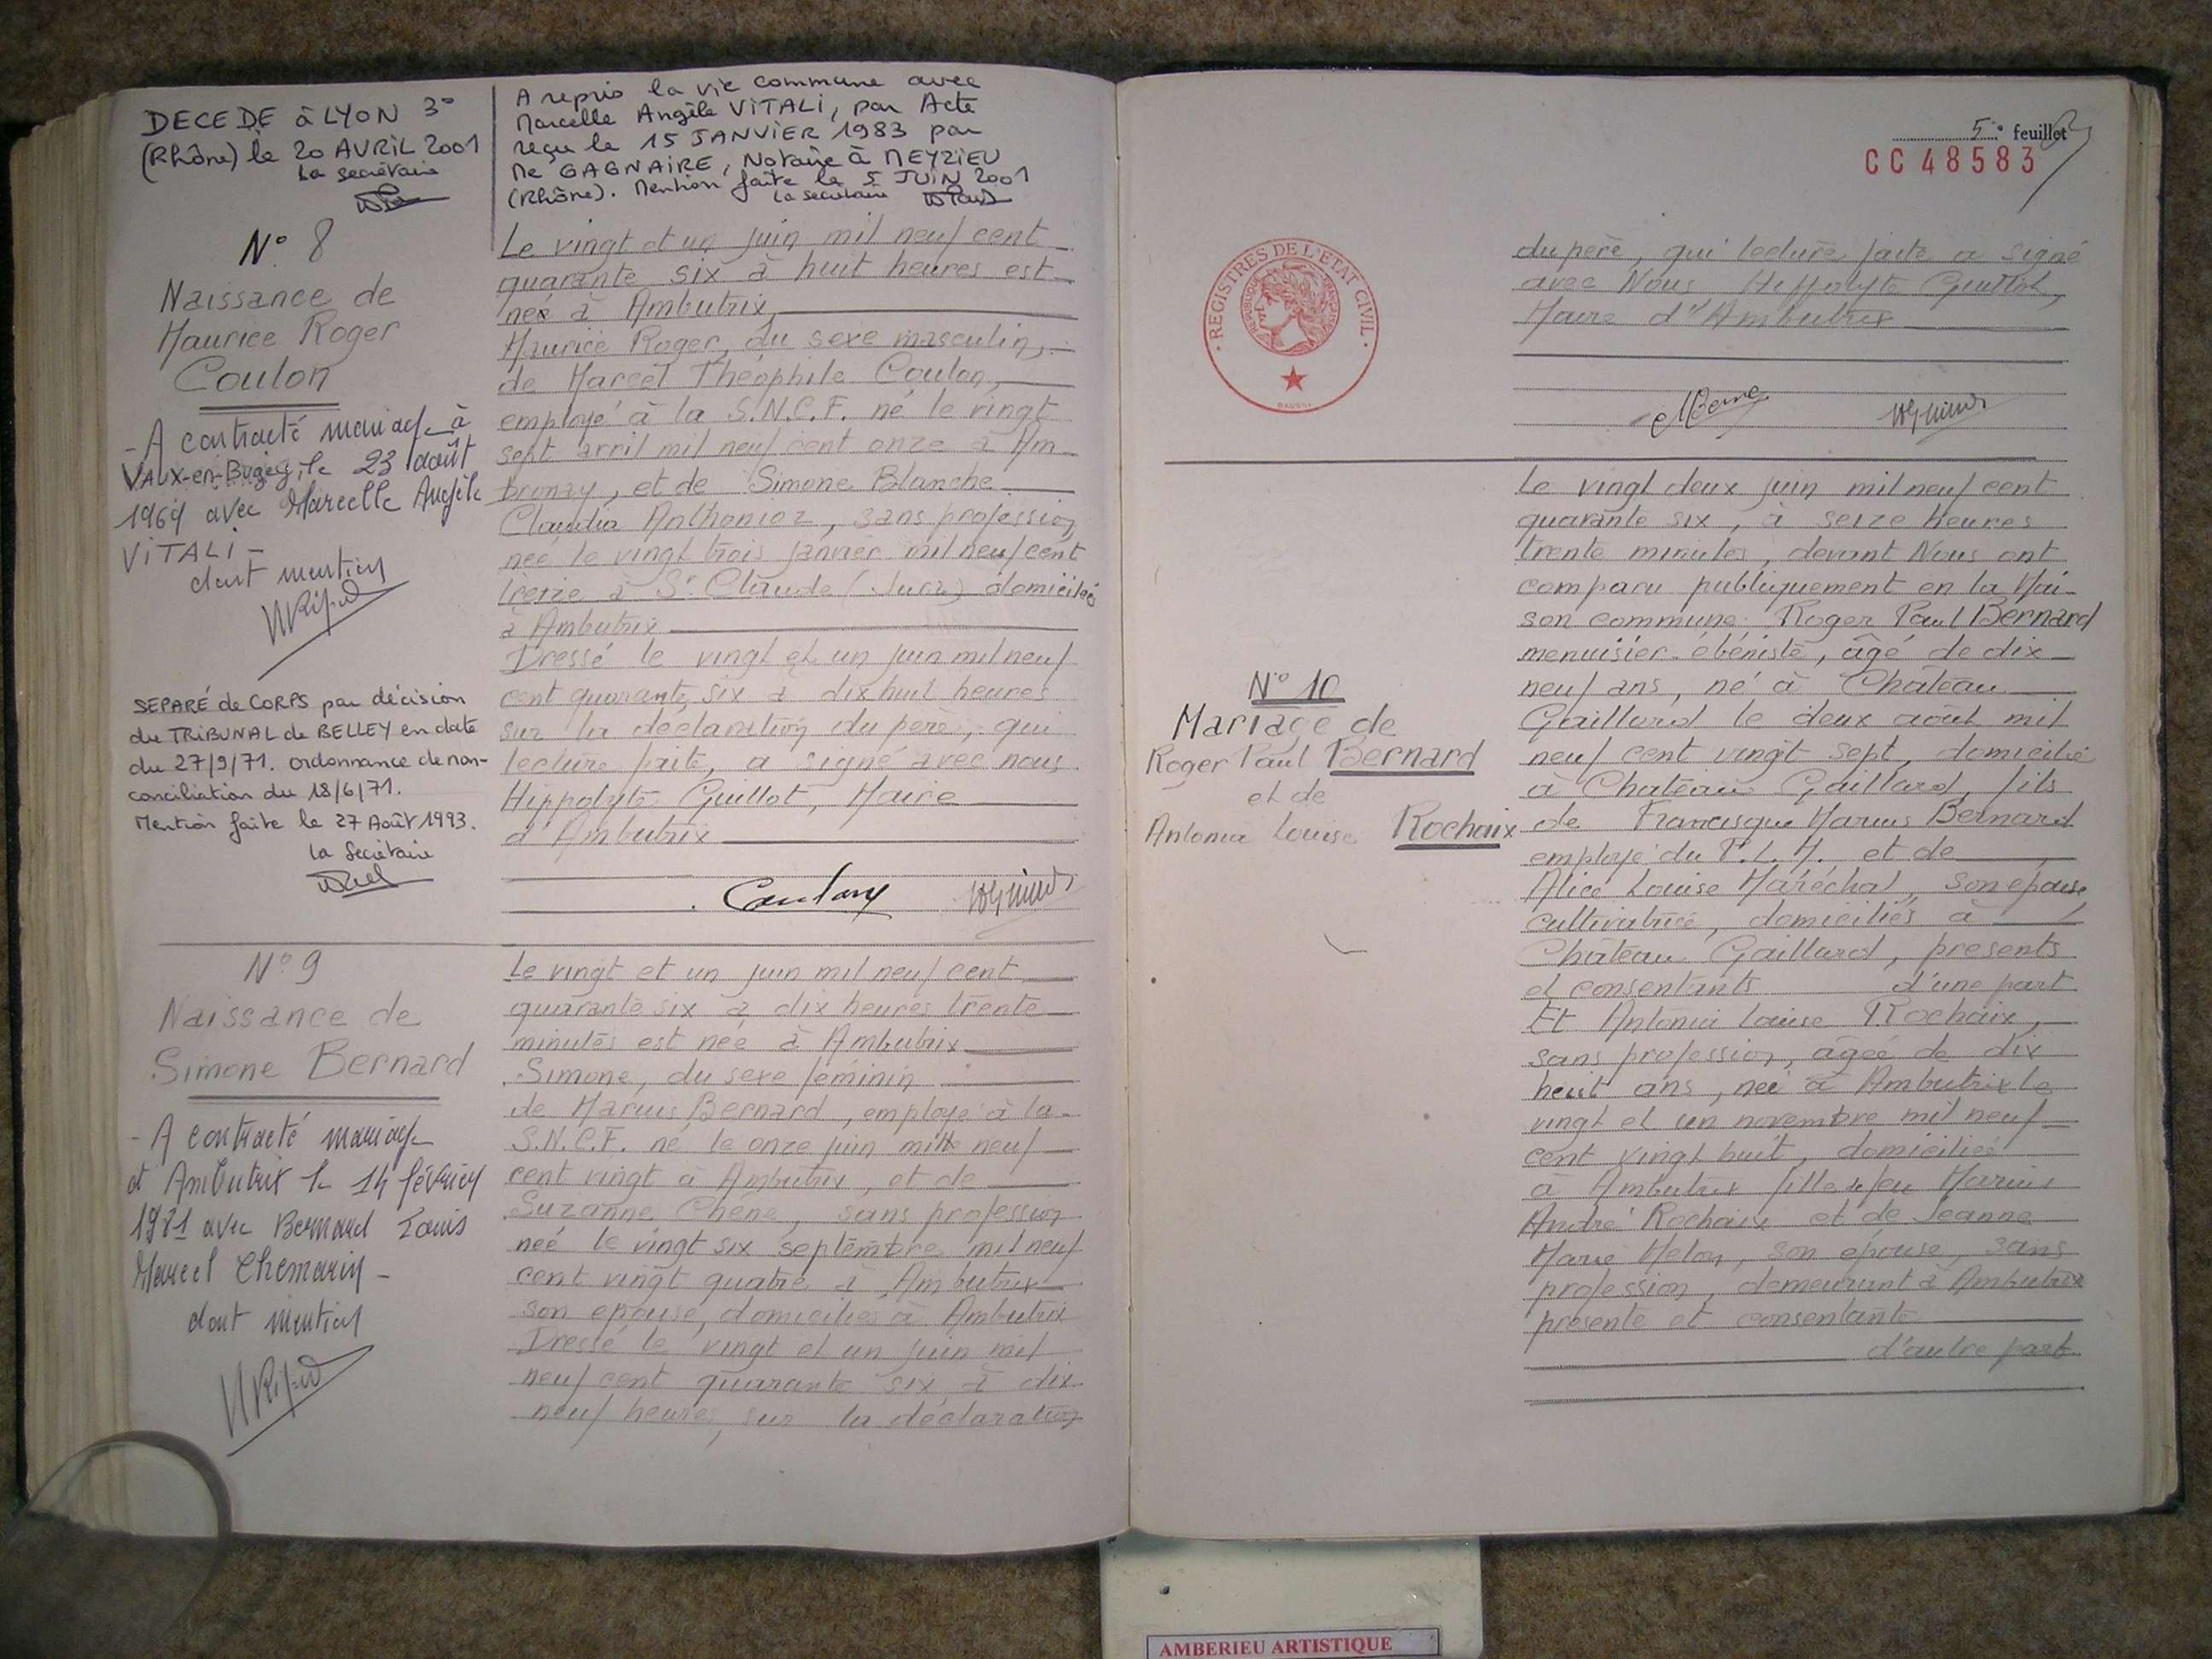 DECEDE à LYON 3°
(Rhône) le 20 AVRIL 2001
La secrétaire
A repris la vie commune avec
Marcelle Angèle VITALI, par Acte
reçu le 15 JANVIER 1983 par
Me GAGNAIRE, Notaire à MEYZIEU
(Rhône). Mention faite le 5 JUIN 2001
La secrétaire
N° 8
Naissance de
Maurice Roger
Coulon
- A contracté mariage à
VAUX-en-Bugey, le 23 août
1969 avec Marcelle Angèle
VITALI -
dont mention
SEPARÉ de CORPS par décision
du TRIBUNAL de BELLEY en date
du 27/9/71. ordonnance de non-
conciliation du 18/6/71.
Mention faite le 27 Août 1993.
La Secrétaire
Le vingt et un juin mil neuf cent
quarante six à huit heures est
né à Ambutrix
Maurice Roger, du sexe masculin,
de Marcel Théophile Coulon,
employé à la S.N.C.F. né le vingt
sept avril mil neuf cent onze à Am
bronay, et de Simone Blanche
Claudia Anthonioz, sans profession
née le vingt trois janvier mil neuf cent
treize à St Claude (Jura) domiciliés
à Ambutrix
Dressé le vingt et un juin mil neuf
cent quarante six à dix huit heures
sur la déclaration du père, qui
lecture faite, a signé avec nous
Hippolyte Guillot, Maire
d'Ambutrix
Coulon
N° 9
Naissance de
Simone Bernard
- A contracté mariage
à Ambutrix le 14 février
1971 avec Bernard Louis
Marcel Chemarin -
dont mention
Le vingt et un juin mil neuf cent
quarante six à dix heures trente
minutes est née à Ambutrix
Simone, du sexe féminin
de Marius Bernard, employé à la
S.N.C.F. né le onze juin mille neuf
cent vingt à Ambutrix, et de
Suzanne Chêne, sans profession
née le vingt six septembre mil neuf
cent vingt quatre à Ambutrix
son épouse, domiciliés à Ambutrix
Dressé le vingt et un juin mil
neuf cent quarante six à dix
neuf heures, sur la déclaration
5° feuillet
CC 48583
REGISTRES DE L'ETAT CIVIL
REPUBLIQUE FRANÇAISE
du père, qui lecture faite a signé
avec Nous Hippolyte Guillot,
Maire d'Ambutrix
N° 10
Mariage de
Roger Paul Bernard
et de
Antonia Louise Rochaix
Le vingt deux juin mil neuf cent
quarante six, à seize heures
trente minutes, devant Nous ont
comparu publiquement en la Mai-
son commune Roger Paul Bernard
menuisier-ébéniste, âgé de dix
neuf ans, né à Château
Gaillard le deux août mil
neuf cent vingt sept, domicilié
à Château Gaillard, fils
de Francisque Marius Bernard
employé du P.L.M. et de
Alice Louise Maréchal, son épouse
cultivatrice, domiciliés à
Château Gaillard, présents
et consentants d'une part
Et Antonia Louise Rochaix,
sans profession, âgée de dix
huit ans, née à Ambutrix le
vingt et un novembre mil neuf
cent vingt huit, domiciliée
à Ambutrix fille de feu Marius
André Rochaix et de Jeanne
Marie Melon, son épouse, sans
profession, demeurant à Ambutrix
présente et consentante
d'autre part
AMBERIEU ARTISTIQUE